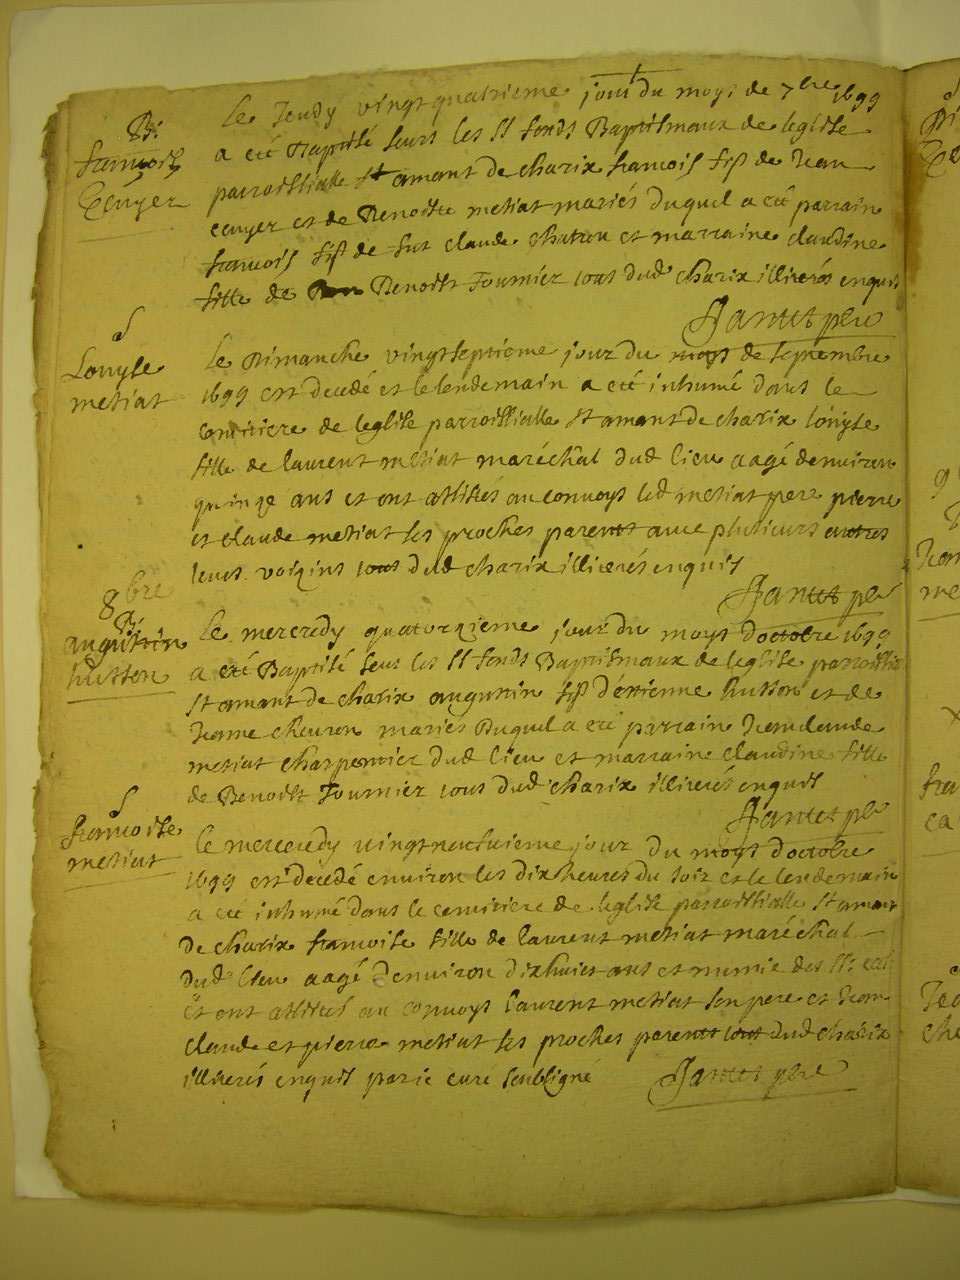 Bt
françois
Ecuyer
Le Jeudy vingt quatrieme jour du moys de 7bre 1699
a eté Baptisé seurs les Sts fonds Baptismaux de leglise
parroissialle St amant De charix francois fils de Jean
ecuyer et de Benoitte metiat mariés Duquel a eté parrain
francois fils de fut claude chatron et marraine claudine
fille de Benoist Fournier tous dud charix illiterés enquis
Jantet ptre
Louyse
metiat
Le Dimanche vingtseptieme jour du moys de septembre
1699 est decedé et le lendemain a eté inhumé dans le
cemitiere de leglise parroissialle St amant De charix louyse
fille de laurent metiat maréchal dud lieu aagé denviron
quinze ans et ont assistés au convoys led metiat pere pierre
et claude metiat ses proches parents avec plusieurs autres
leurs voizins tous dud charix illiterés enquis
Jantet ptre
8bre
Bt
augustin
husson
Le mercredy quatorzieme jour du moys doctobre 1699
a eté Baptisé seus les Sts fonds Baptismaux de leglise parroissia
St amant De charix augustin fils d'estienne husson et de
Jeanne chevron mariés Duquel a eté parrain Jeanclaude
metiat charpentier dud lieu et marraine claudine fille
de Benoist Fournier tous dud charix illiterés enquis
Jantet ptre
francoise
metiat
Le mercredy vingt huictieme jour du moys doctobre
1699 est decedé environ les dix heures du soir et le lendemain
a eté inhumé dans le cemitiere de leglise parroissialle St amant
De charix francoise fille de laurent metiat maréchal
dud lieu aagé denviron dixhuict ans et munie des Sts
et ont assistés au convoys laurent metiat son pere et Jean
claude et pierre metiat ses proches parents tous dud charix
illiterés enquis par le curé soubsigné Jantet ptre